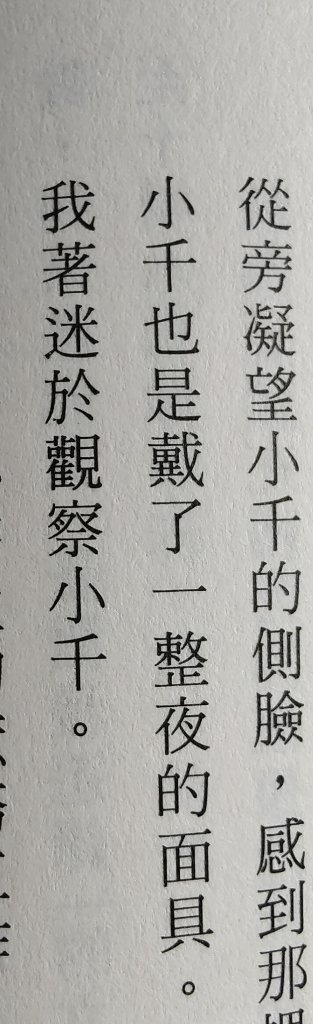 從旁凝望小千的側臉，感到那
小千也是戴了一整夜的面具。
我著迷於觀察小千。